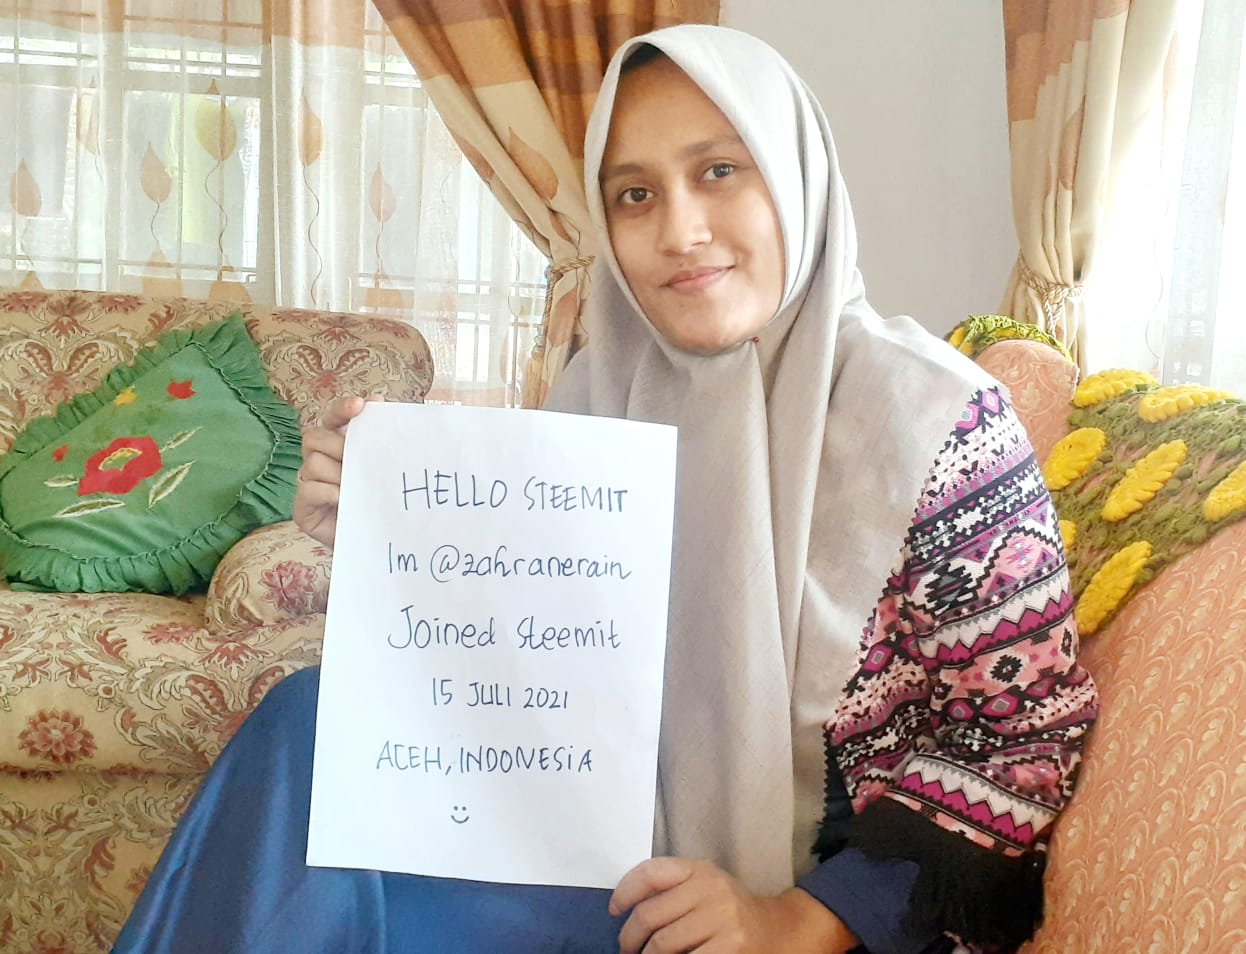 HELLO STEEMIT
Im @zahranerain
Joined steemit
15 JULI 2021
ACEH, INDONESiA